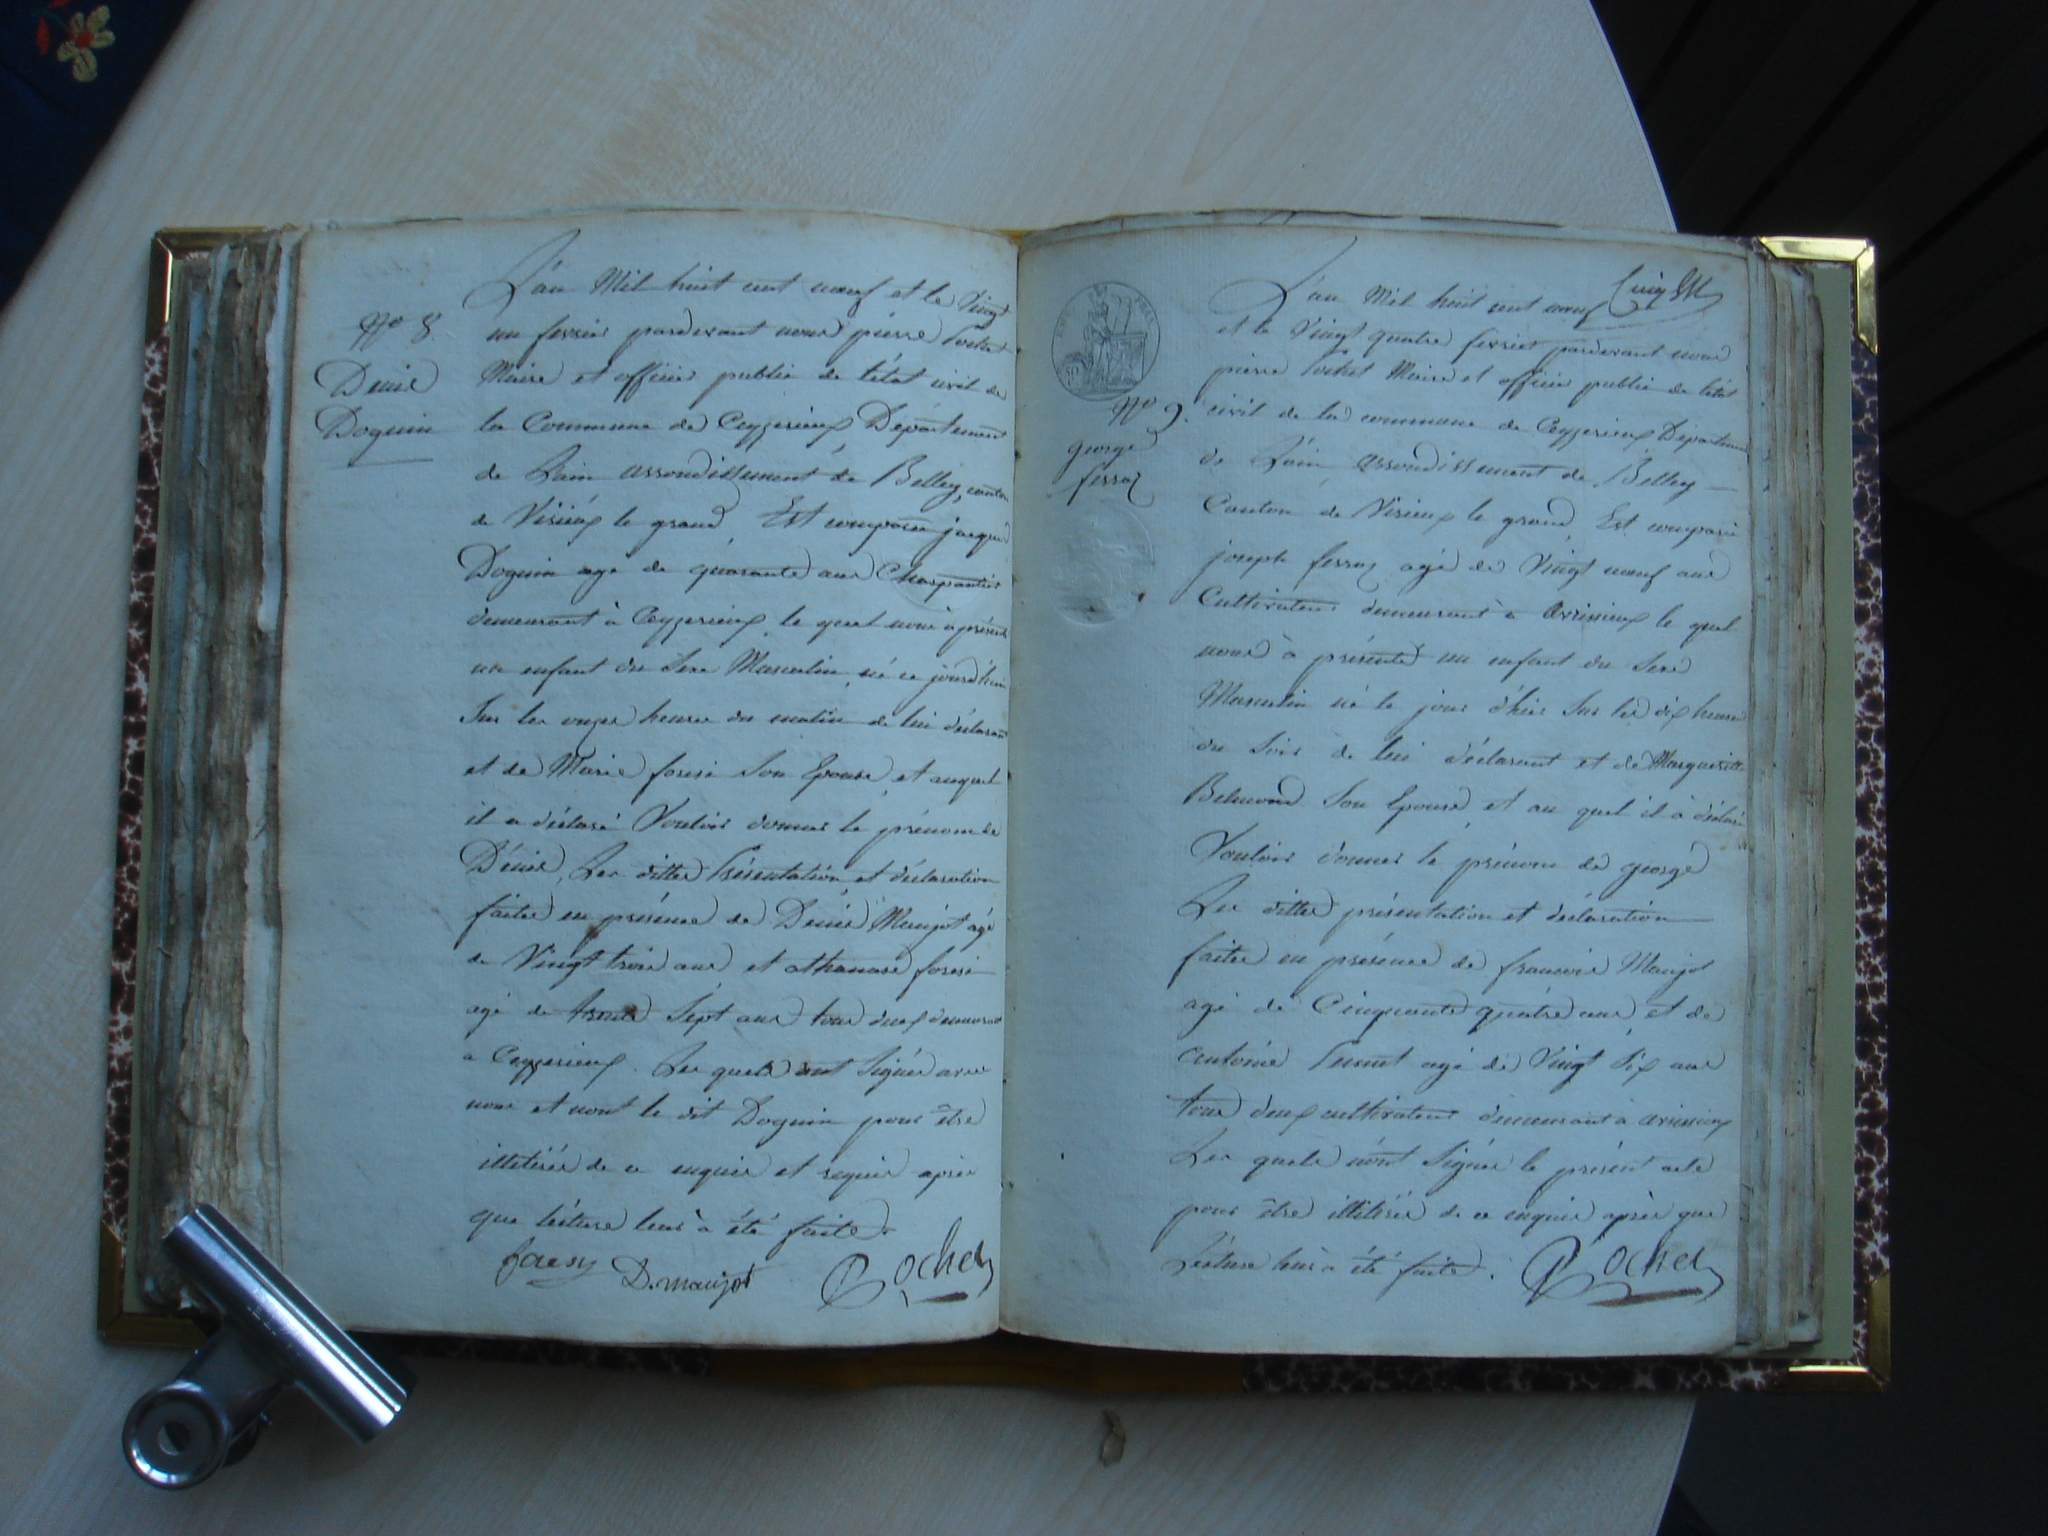 L'an Mil huit cent noeuf et le Vingt
No 8.
un fevrier pardevant nous pierre Rochet
Denis
Maire et officier public de l'état civil de
Doguin
la Commune de Ceyzerieux Département
de Lain arrondissement de Belley, canton
de Virieux le grand, Est comparu jacques
Doguin agé de quarante ans Charpantier
demeurant à Ceyzerieux, le quel nous à présenté
un enfant du Sexe Masculin, né ce jourd'hui
Sur les onzes heures du matin de lui déclarant
et de Marie foresi Son Epouse, et auquel
il a déclaré Vouloir donner le prénom de
Dénis, Les dittes Présentation, et déclaration
faites en présence de Denis Maujot agé
de Vingt trois ans et athanase foresi
agé de trente Sépt ans tous deux demeurant
a Ceyzerieux. Les quels ont Signés avec
nous et nont le dit Doguin pour être
illetérés de ce enquis et requis après
que léture leur à été faite
foresy D. maujot Rochet
L'an Mil huit cent noeuf
et le Vingt quatre fevrier pardevant nous
pierre Rochet Maire et officier public de l'état
No 9.
civil de la commune de Ceyzerieux Département
george
ferroz
de Lain arrondissement de Belley
Canton de Virieux le grand, Est comparu
joseph ferroz agé de Vingt noeuf ans
Cultivateur demeurant à avrissieux le quel
nous à présenté un enfant du Sexe
Masculin né le jour d'hier Sur les dix heures
du Soir de lui déclarant et de Margueritte
Belmond Son Epouse, et au quel il à déclaré
Vouloir donner le prénom de george
Les dittes présentation et déclaration
faites en présence de francois Maujot
agé de Cinquante quatre ans, et de
antoine agé de Vingt Six ans
tous deux cultivateurs demeurant à avrissieux
Les quels n'ont Signés le présent acte
pour être illétérés de ce enquis après que
Lécture leur à été faite. Rochet